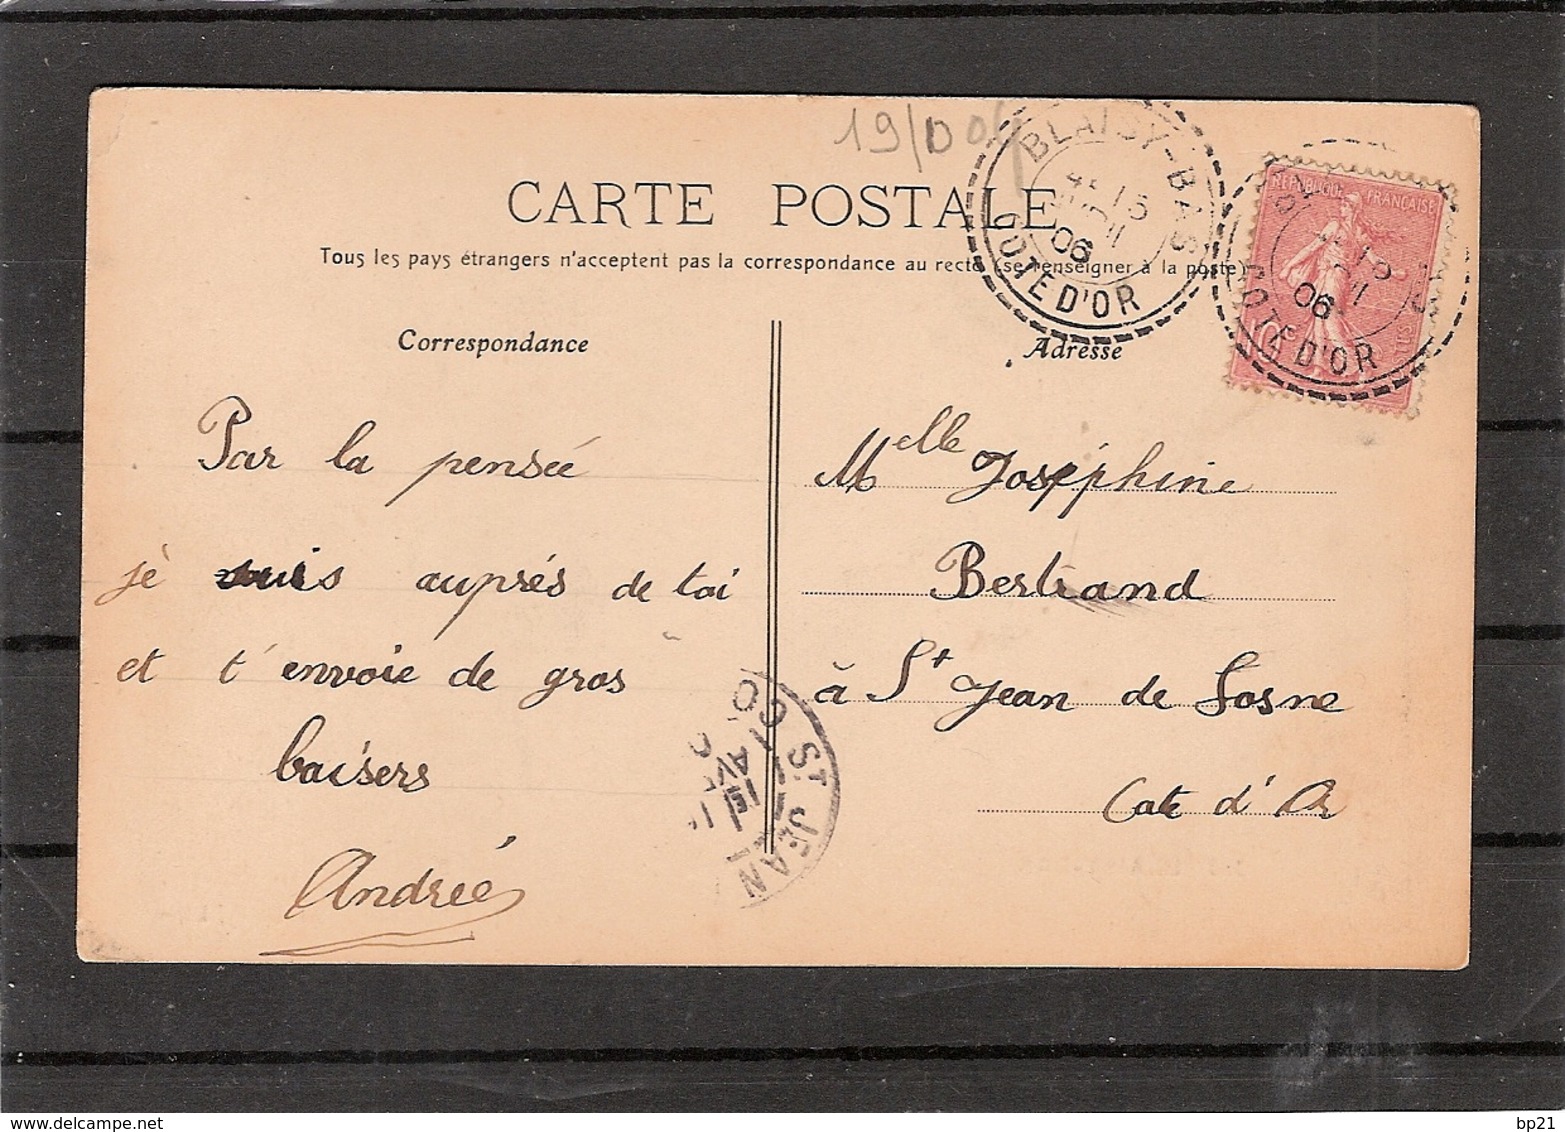 19/
CARTE POSTALE
Tous les pays étrangers n'acceptent pas la correspondance au recto (se renseigner à la poste)
BLAISY-BAS
06
COTE D'OR
REPUBLIQUE FRANÇAISE
10c
06
COTE D'OR
Correspondance
Par la pensée
je suis auprés de toi
et t'envoie de gros
baisers
Andrée
Adresse
Melle Joséphine
Bertrand
à St Jean de Losne
Cote d'Or
ST JEAN
bp21